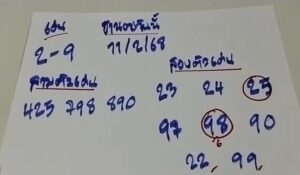 เด่น
2-9
ฐานอยู่วันนี้
11/2/68
สามตัวเด่น
425 798 890
สองตัวเด่น
23 24 25
97 98 90
6
22, 99,